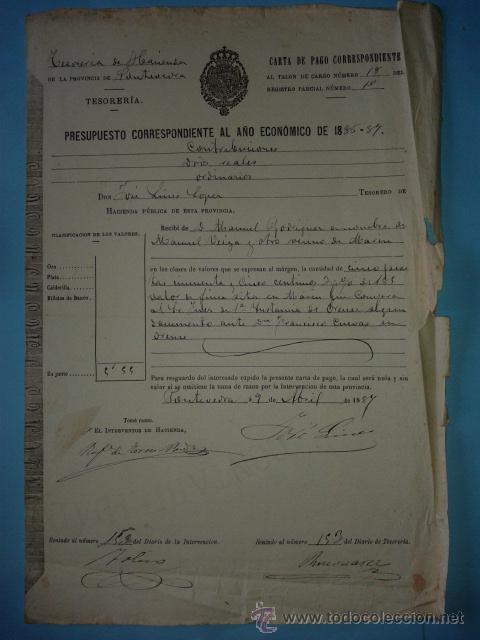 Tesorería de Hacienda
DE LA PROVINCIA DE Pontevedra
TESORERÍA.
CARTA DE PAGO CORRESPONDIENTE
AL TALON DE CARGO NÚMERO 18 DEL
REGISTRO PARCIAL NÚMERO
PRESUPUESTO CORRESPONDIENTE AL AÑO ECONÓMICO DE 1886-87.
Contribuciones
reales
ordinarios
DON José Lines Lopez TESORERO DE
HACIENDA PÚBLICA DE ESTA PROVINCIA.
CLASIFICACION DE LOS VALORES.
Oro
Plata
Calderilla
Billetes de Banco
En junto
Recibí de D. Manuel Rodriguez en nombre de
Manuel Veiga y otro vecino de
en las clases de valores que se expresan al márgen, la cantidad de cinco pese
tas cincuenta y cinco centimos
valor de finca sita en
al Sr. Juez de 1ª Instancia de Orense
documento ante Francisco Cuevas en
Orense
Para resguardo del interesado expido la presente carta de pago, la cual será nula y sin
valor si se omitiese la toma de razon por la Intervencion de esta provincia.
Pontevedra 9 de Abril de 1887
Tomé razon.
EL INTERVENTOR DE HACIENDA,
José Lines
Sentado al número 153 del Diario de la Intervencion.
Sentado al número 153 del Diario de Tesorería.
www.todocoleccion.net